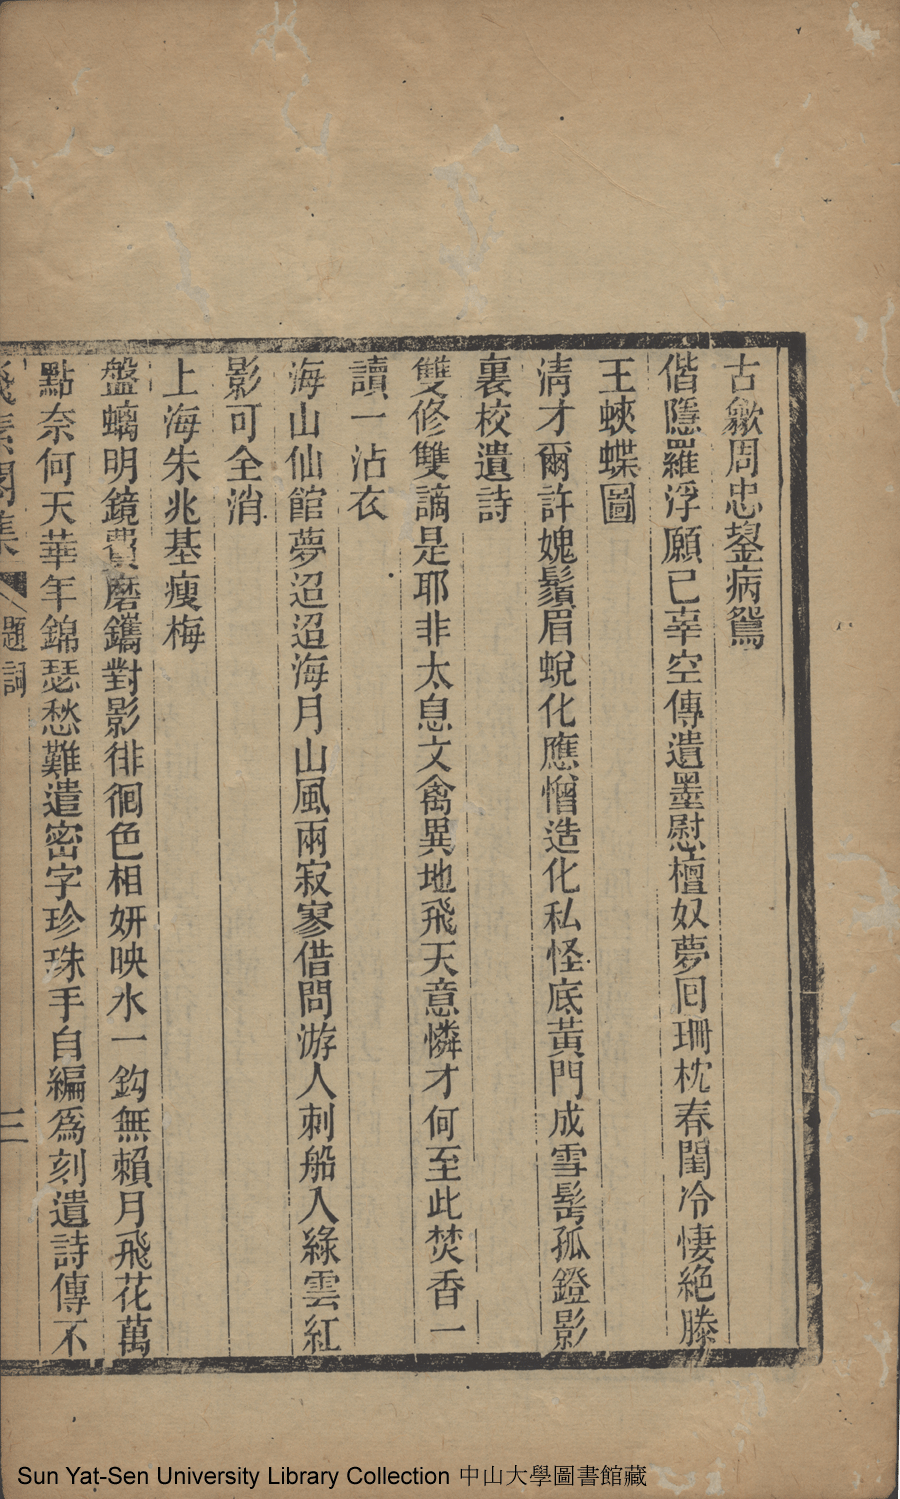 古歙周忠鋆病鴛
偕隱羅浮願已辜空傳遺墨慰檀奴夢囘珊枕春閨冷悽絶滕
王蛺蝶圖
淸才爾許媿鬚眉蛻化應憎造化私怪底黃門成雪髩孤鐙影
裏校遺詩
雙修雙謫是耶非太息文禽異地飛天意憐才何至此焚香一
讀一沾衣
海山仙館夢迢迢海月山風兩寂寥借問游人刺船入綠雲紅
影可全消
上海朱兆基瘦梅
盤螭明鏡費磨鑴對影徘徊色相姸映水一鈎無賴月飛花萬
點奈何天華年錦瑟愁難遣密字珍珠手自編爲刻遺詩傳不
集 題詞 三
Sun Yat-Sen University Library Collection 中山大學圖書館藏